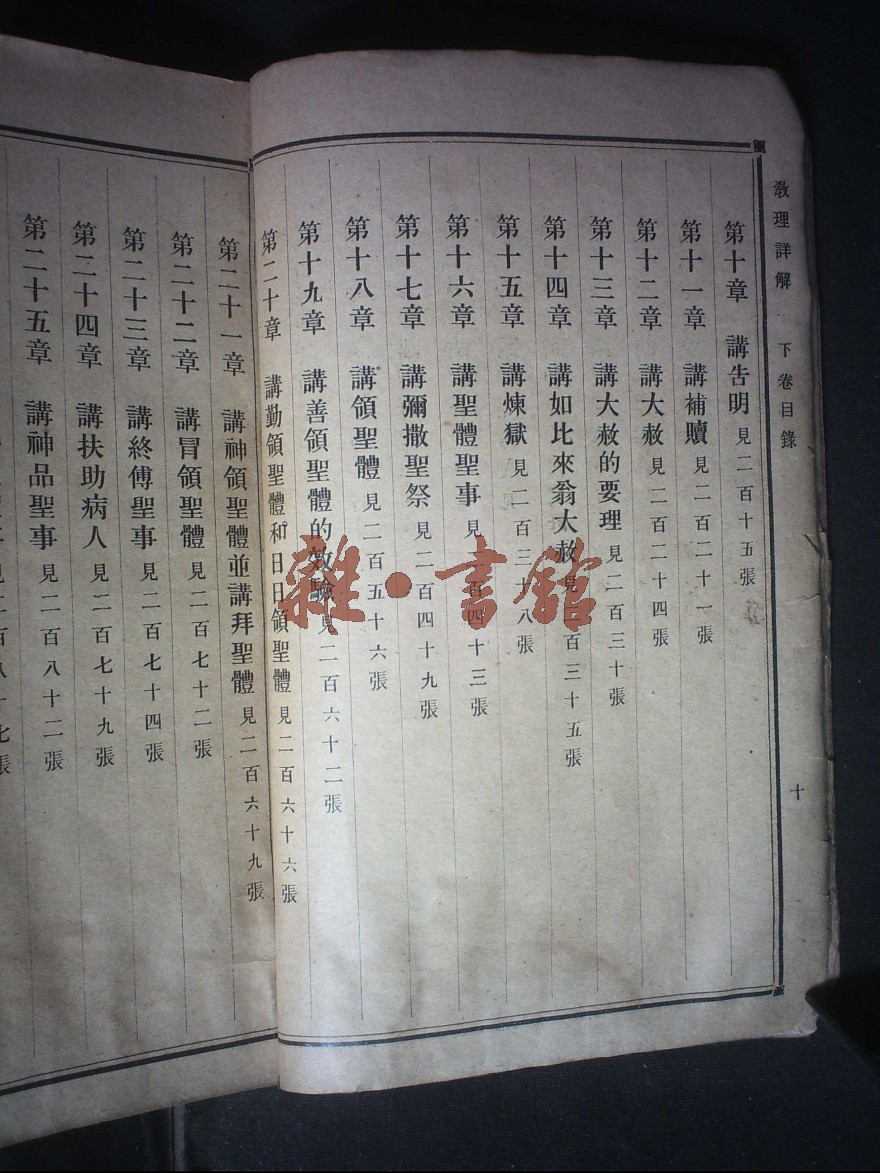 教理詳解 下卷目錄 十
第十章 講吿明 見二百十五張
第十一章 講補贖 見二百二十一張
第十二章 講大赦 見二百二十四張
第十三章 講大赦的要理 見二百三十張
第十四章 講如比來翁大赦 見二百三十五張
第十五章 講煉獄 見二百三十八張
第十六章 講聖體聖事 見二百四十三張
第十七章 講彌撒聖祭 見二百四十九張
第十八章 講領聖體 見二百五十六張
第十九章 講善領聖體的效驗 見二百六十二張
第二十章 講勤領聖體和日日領聖體 見二百六十六張
第二十一章 講神領聖體並講拜聖體 見二百六十九張
第二十二章 講冒領聖體 見二百七十二張
第二十三章 講終傅聖事 見二百七十四張
第二十四章 講扶助病人 見二百七十九張
第二十五章 講神品聖事 見二百八十二張
雜·書舘